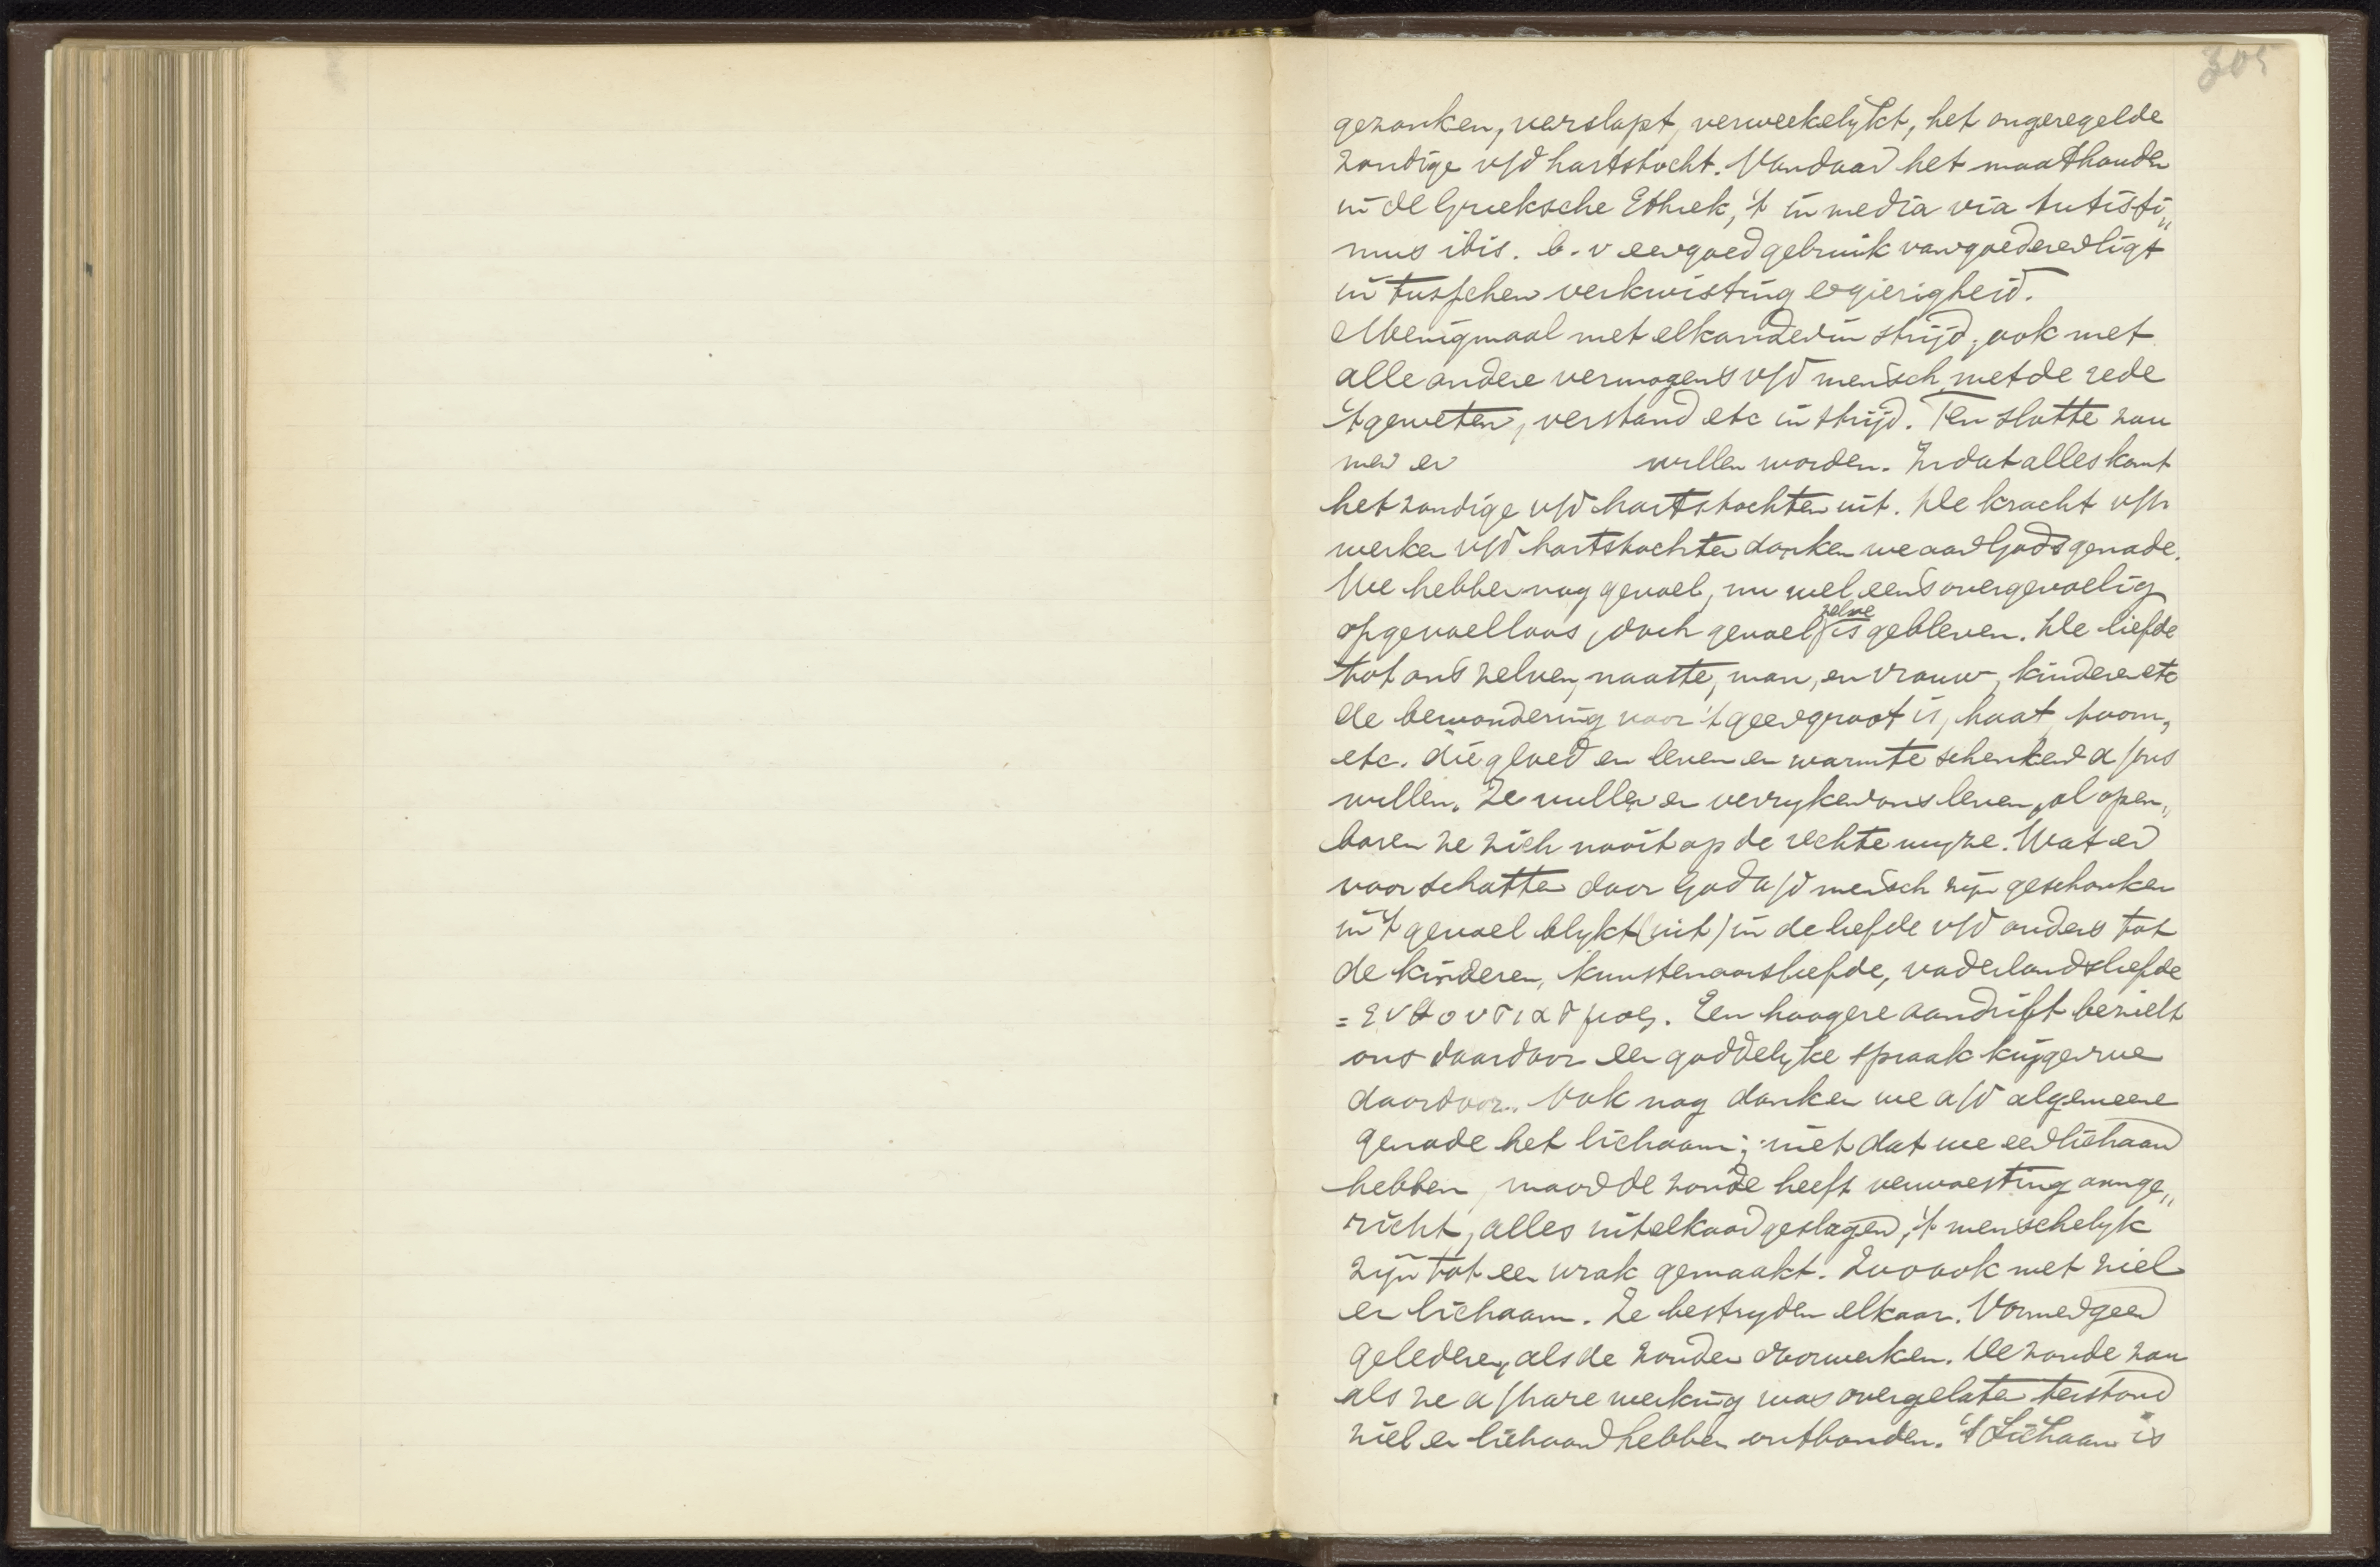 305
gezonken, verslapt, verweekelykt, het ongeregelde
zondige v/d hartstocht. Vandaar het maathouden
in de Grieksche Ethiek, 't in media via tutissi„
mus ibis. b.v een goed gebruik van goederen ligt
in tusschen verkwisting en gierigheid.
Menigmaal met elkander in strijd, ook met
alle andere vermogens v/d mensch, met de rede
't geweten, verstand etc in strijd. Ten slotte zou
men er willen worden. In dat alles komt
het zondige v/d hartstochten uit. De kracht v/h
werken v/d hartstochten danken we aan Gods genade.
We hebben nog gevoel, nu wel eens overgevoelig
of gevoelloos, doch gevoel zelve is gebleven. De liefde
tot ons zelven, naaste, man, en vrouw, kinderen etc
de bewondering voor 't geen groot is, haat, toorn,
etc. die gloed en leven en warmte schenken a/ons
willen. Ze vullen en verryken ons leven, al open„
baren ze zich nooit op de rechte wyze. Wat er
voor schatten door God a/d mensch zijn geschonken
in 't gevoel blykt (uit) in de liefde v/d ouders tot
de kinderen, kunstenaarsliefde, vaderlandsliefde
= ενθουσιασμος. Een hoogere aandrift bezielt
ons daardoor een goddelyke spraak krijgen we
daardoor. Ook nog danken we a/d algemeene
genade het lichaam; niet dat we een lichaam
hebben, maar de zonde heeft verwoesting aange„
richt, alles uit elkaar geslagen, 't menschelyk
zijn tot een wrak gemaakt. Zoo ook met ziel
en lichaam. Ze bestryden elkaar. Vormen geen
geledere, als de zonden doorwerken. De zonde zou
als ze a/hare werking was overgelaten terstond
ziel en lichaam hebben ontbonden. 't Lichaam is